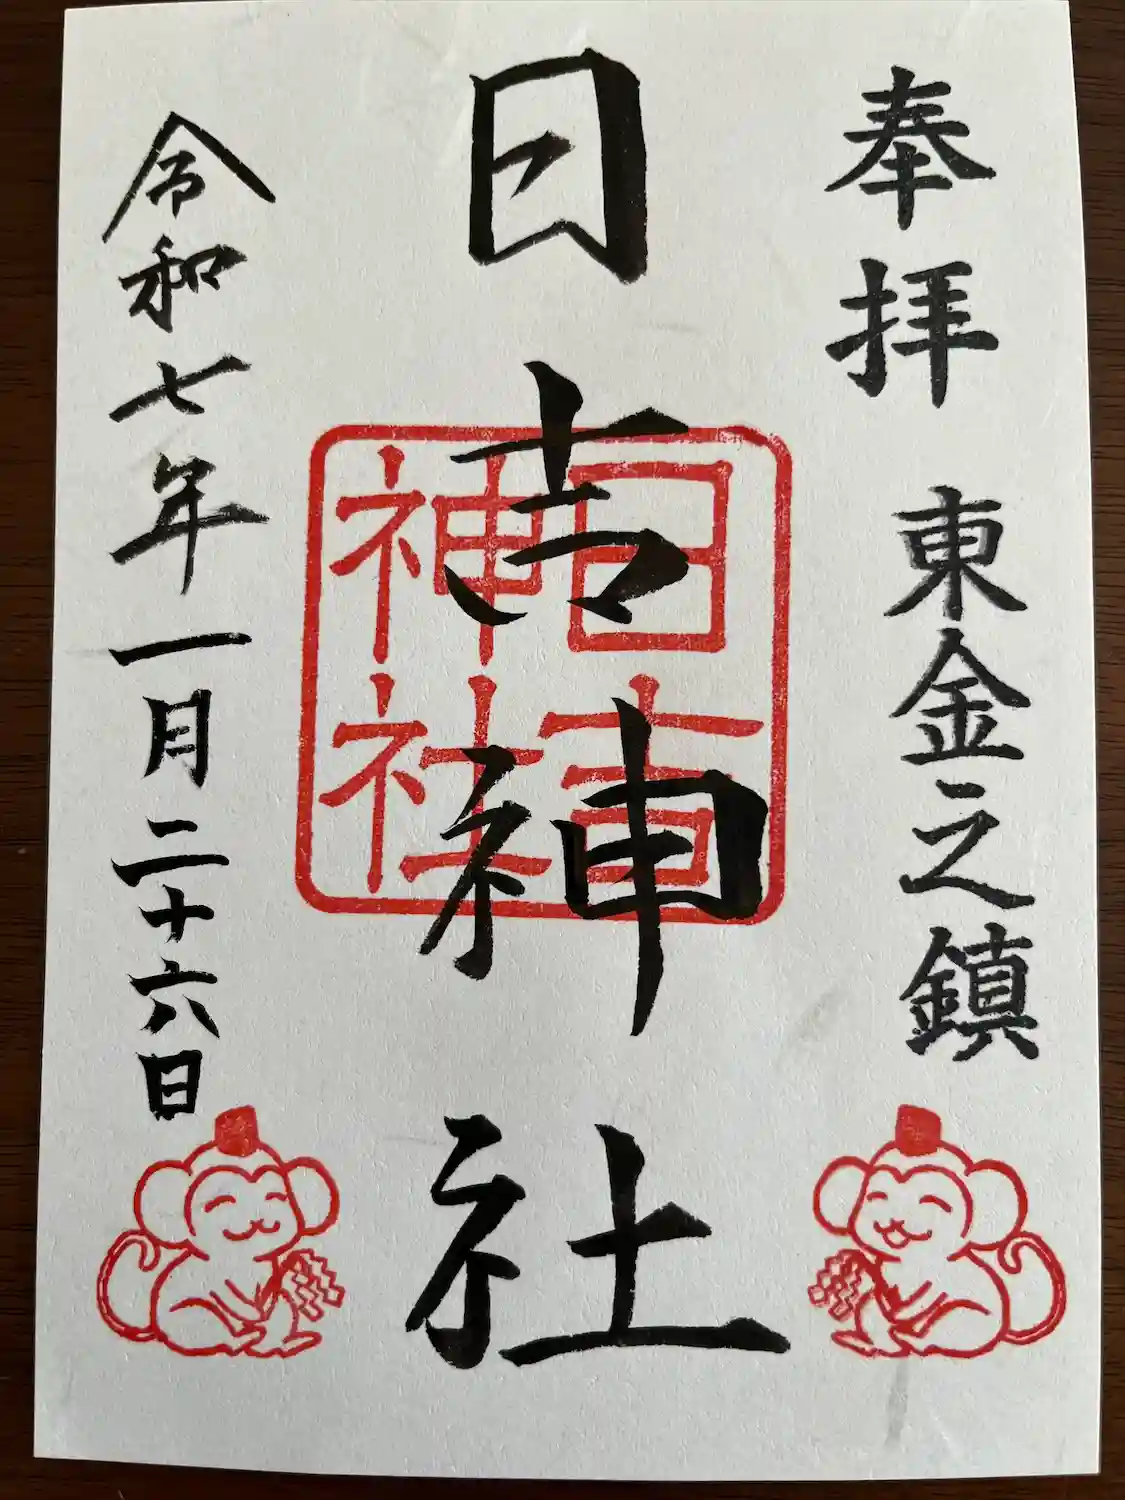 奉拝 東金之鎮
日吉神社
日吉神社
令和七年一月二十六日